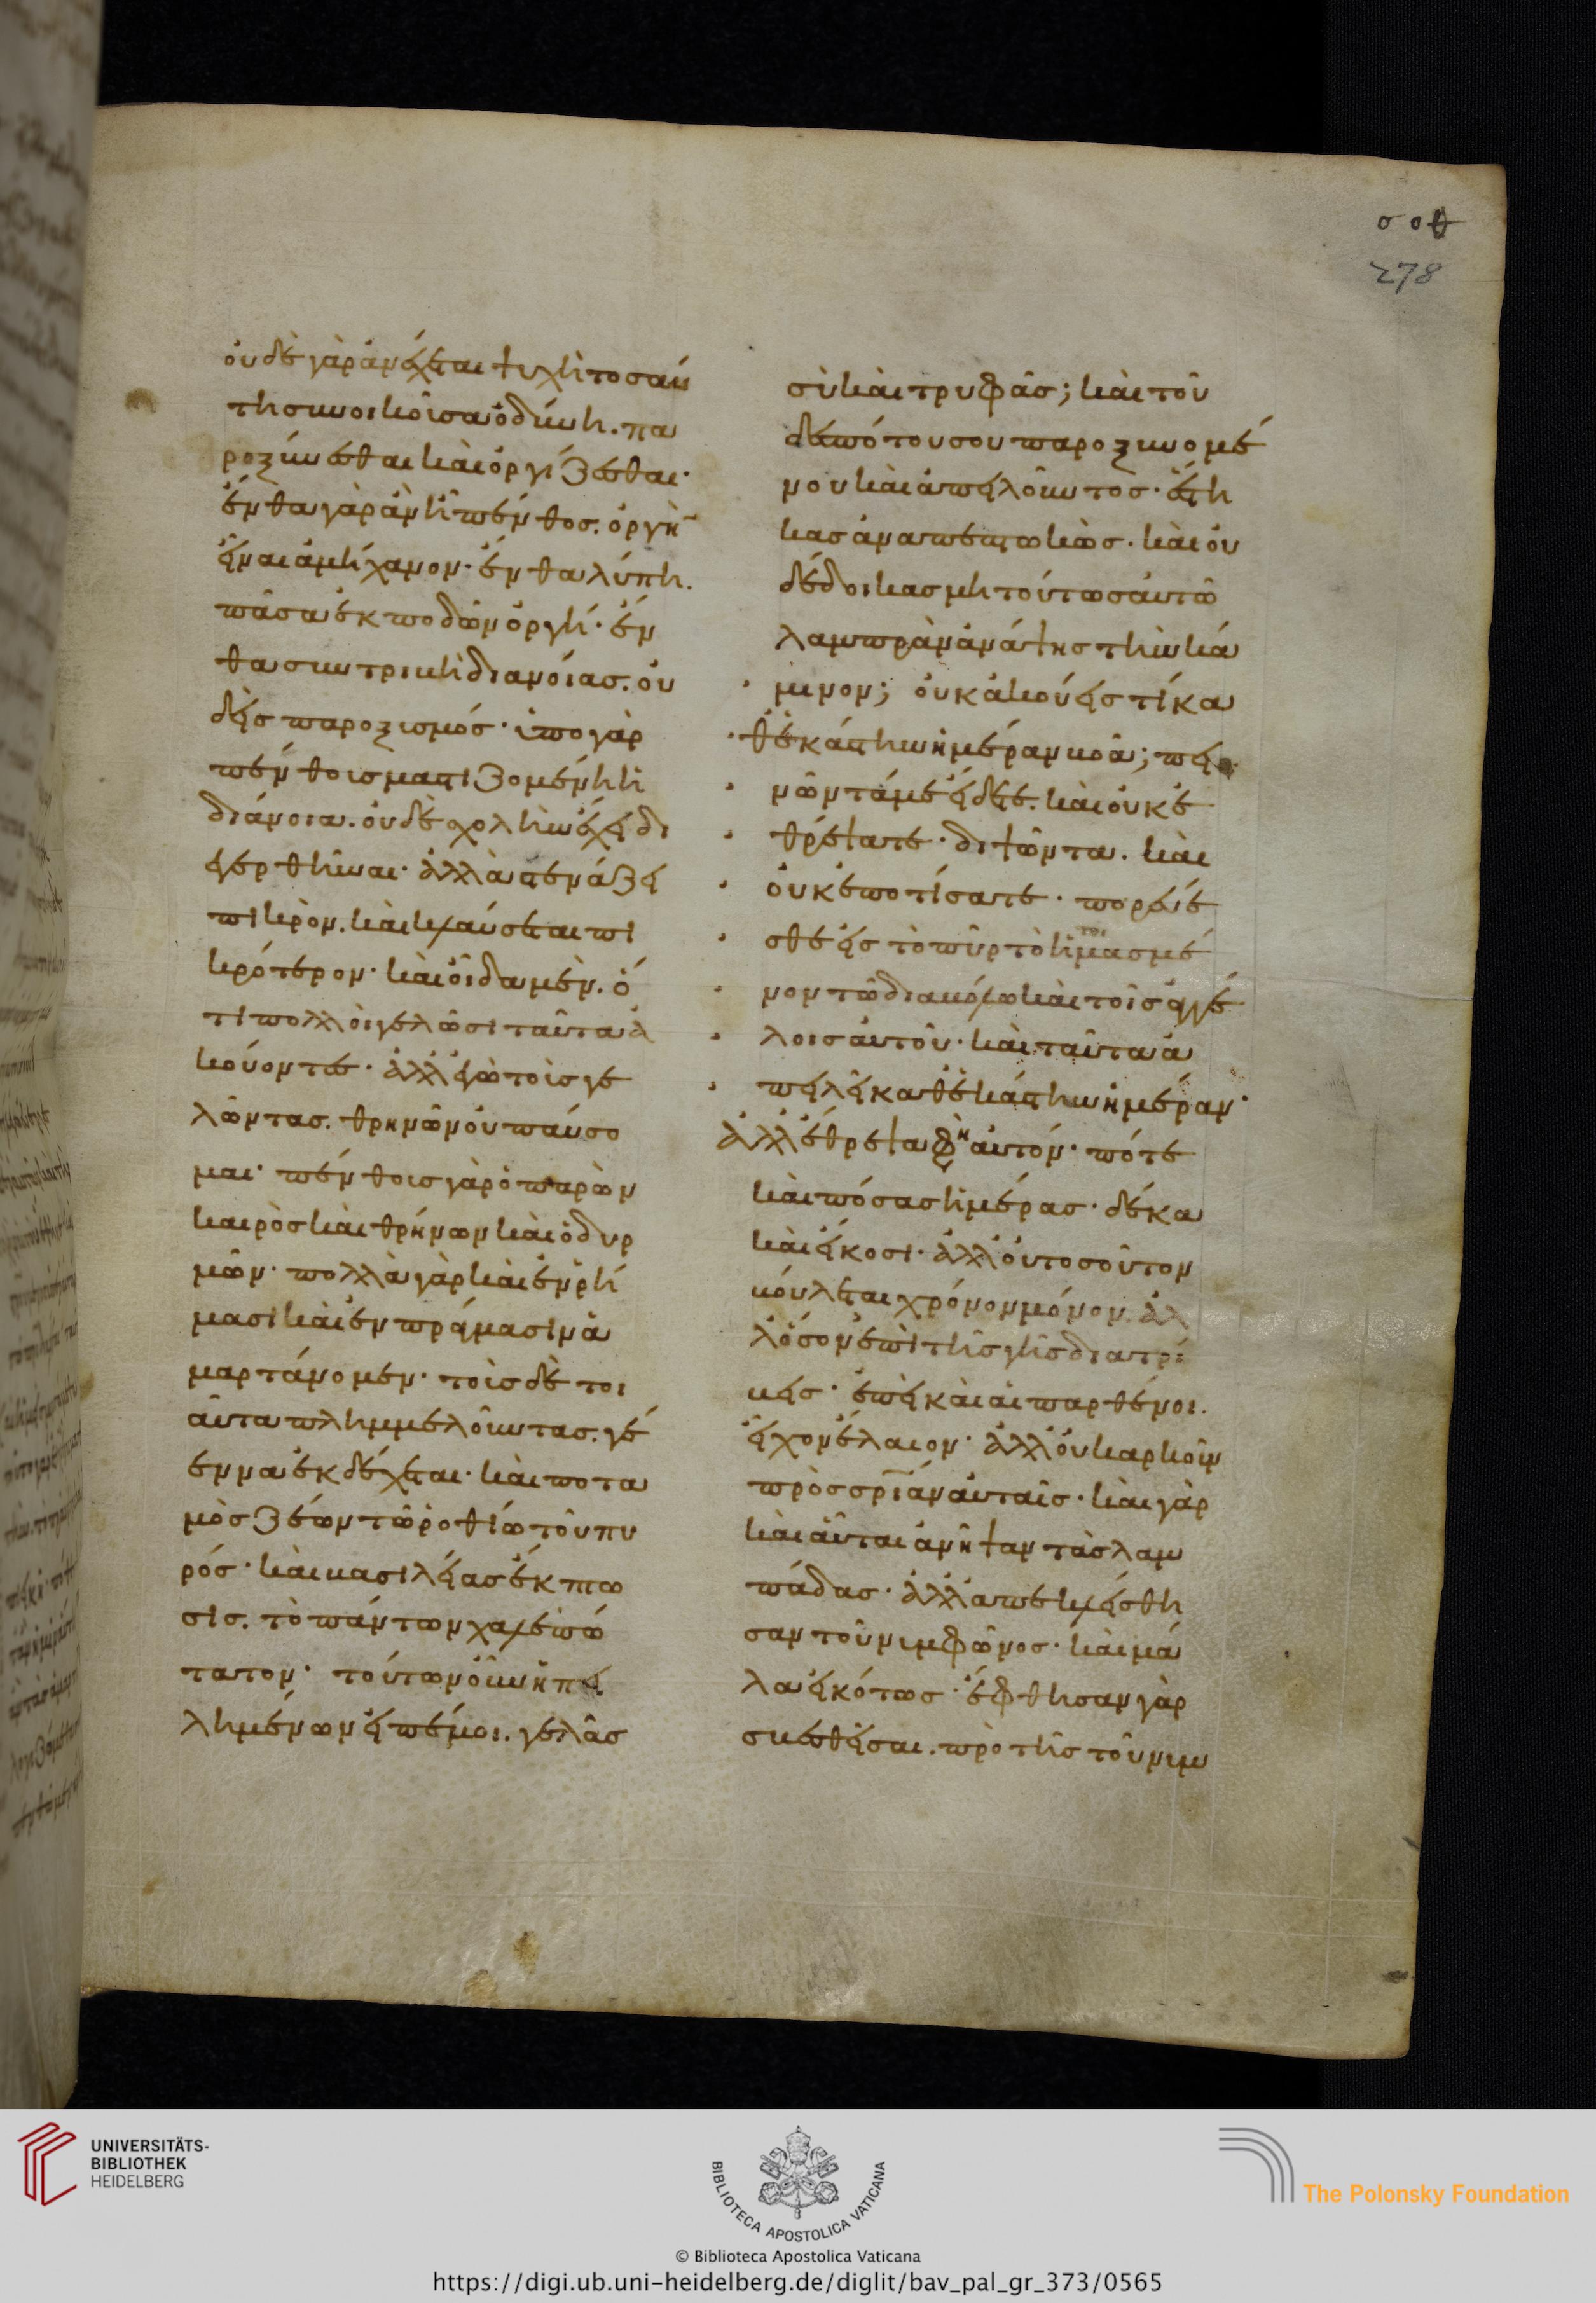 σοθ
278
οὐδὲ γὰρ ἀνέχεται ψυχὴ τοσαύ
τη συνοικοῦσα ὀδύνη. πα
ροξύνεσθαι καὶ ὀργίζεσθαι·
ἔνθα γὰρ ἂν ἦ πένθος. ὀργὴν
εἶναι ἀμήχανον· ἔνθα λύπη.
πᾶσα ἐκποδὼν ὀργή· ἔν
θα συντριβὴ διανοίας. οὐ
δεὶς παροξισμός· ὑπο γὰρ
πένθοις μαστιζομένη ἡ
διάνοια. οὐδὲ σχολὴν ἔχει δι
εγερθῆναι· ἀλλὰ στενάζει
πικρὸν. καὶ κλαύσεται πι
κρότερον· καὶ οἶδα μὲν. ὅ
τι πολλοὶ γελῶσι ταῦτα ἀ
κούοντες· ἀλλ' ἐγὼ τοὺς γε
λῶντας. θρηνῶν οὐ παύσο
μαι· πένθους γὰρ ὁ παρὼν
καιρὸς καὶ θρήνων καὶ ὀδυρ
μῶν· πολλὰ γὰρ καὶ ἐν ῥή
μασι καὶ ἐν πράγμασιν ἁ
μαρτάνομεν· τοὺς δὲ τοι
αῦτα πλημμελοῦντας. γέ
εννα ἐκδέχεται· καὶ ποτα
μὸς ζέων τῶ ῥοθίω τοῦ πυ
ρός· καὶ βασιλείας ἔκπτω
σις. τὸ πάντων χαλεπώ
τατον· τούτων οὖν ἠπει
λημένων εἰπέ μοι. γελᾶς
σὺ καὶ τρυφᾶς; καὶ τοῦ
δεσπότου σου παροξυνομέ
νου καὶ ἀπειλοῦντος· ἕστη
κας ἀναπεπτωκὼς. καὶ οὐ
δέδοικας μὴ τούτοις ἑαυτῶ
λαμπρὰν ἀνάψης τὴν κά
μινον; οὐκ ἀκούεις τί κα
θ' ἑκάστην ἡμέραν βοᾶ; πει
νῶντά με εἴδετε. καὶ οὐκ ἐ
θρέψατε· διψῶντα. καὶ
οὐκ ἐποτίσατε· πορεύε
σθε εἰς τὸ πῦρ τὸ ἡτοιμασμέ
νον τῶ διαβόλω καὶ τοῖς ἀγγέ
λοις αὐτοῦ· καὶ ταῦτα ἀ
πειλεῖ καθ' ἑκάστην ἡμέραν·
ἀλλ' ἔθρεψα φησὶν αὐτόν· πότε
καὶ πόσας ἡμέρας· δέκα
καὶ εἴκοσι· ἀλλ' οὐ τοσοῦτον
βούλεται χρόνον μόνον. ἀλ
λ' ὅσον ἐπὶ τῆς γῆς διατρί
βεις· ἐπεὶ καὶ αἱ παρθένοι.
εἶχον ἔλαιον· ἀλλ' οὐκ ἀρκοῦν
πρὸς σρίαν αὐταῖς· καὶ γὰρ
καὶ αὗται ἀνῆψαν τὰς λαμ
πάδας· ἀλλ' ἀπεκλείσθη
σαν τοῦ νιμφῶνος· καὶ μά
λα εἰκότως· ἔφθησαν γὰρ
σβεσθεῖσαι. πρὸ τῆς τοῦ νιμ
UNIVERSITÄTS-
BIBLIOTHEK
HEIDELBERG
BIBLIOTECA APOSTOLICA VATICANA
The Polonsky Foundation
© Biblioteca Apostolica Vaticana
https://digi.ub.uni-heidelberg.de/diglit/bav_pal_gr_373/0565